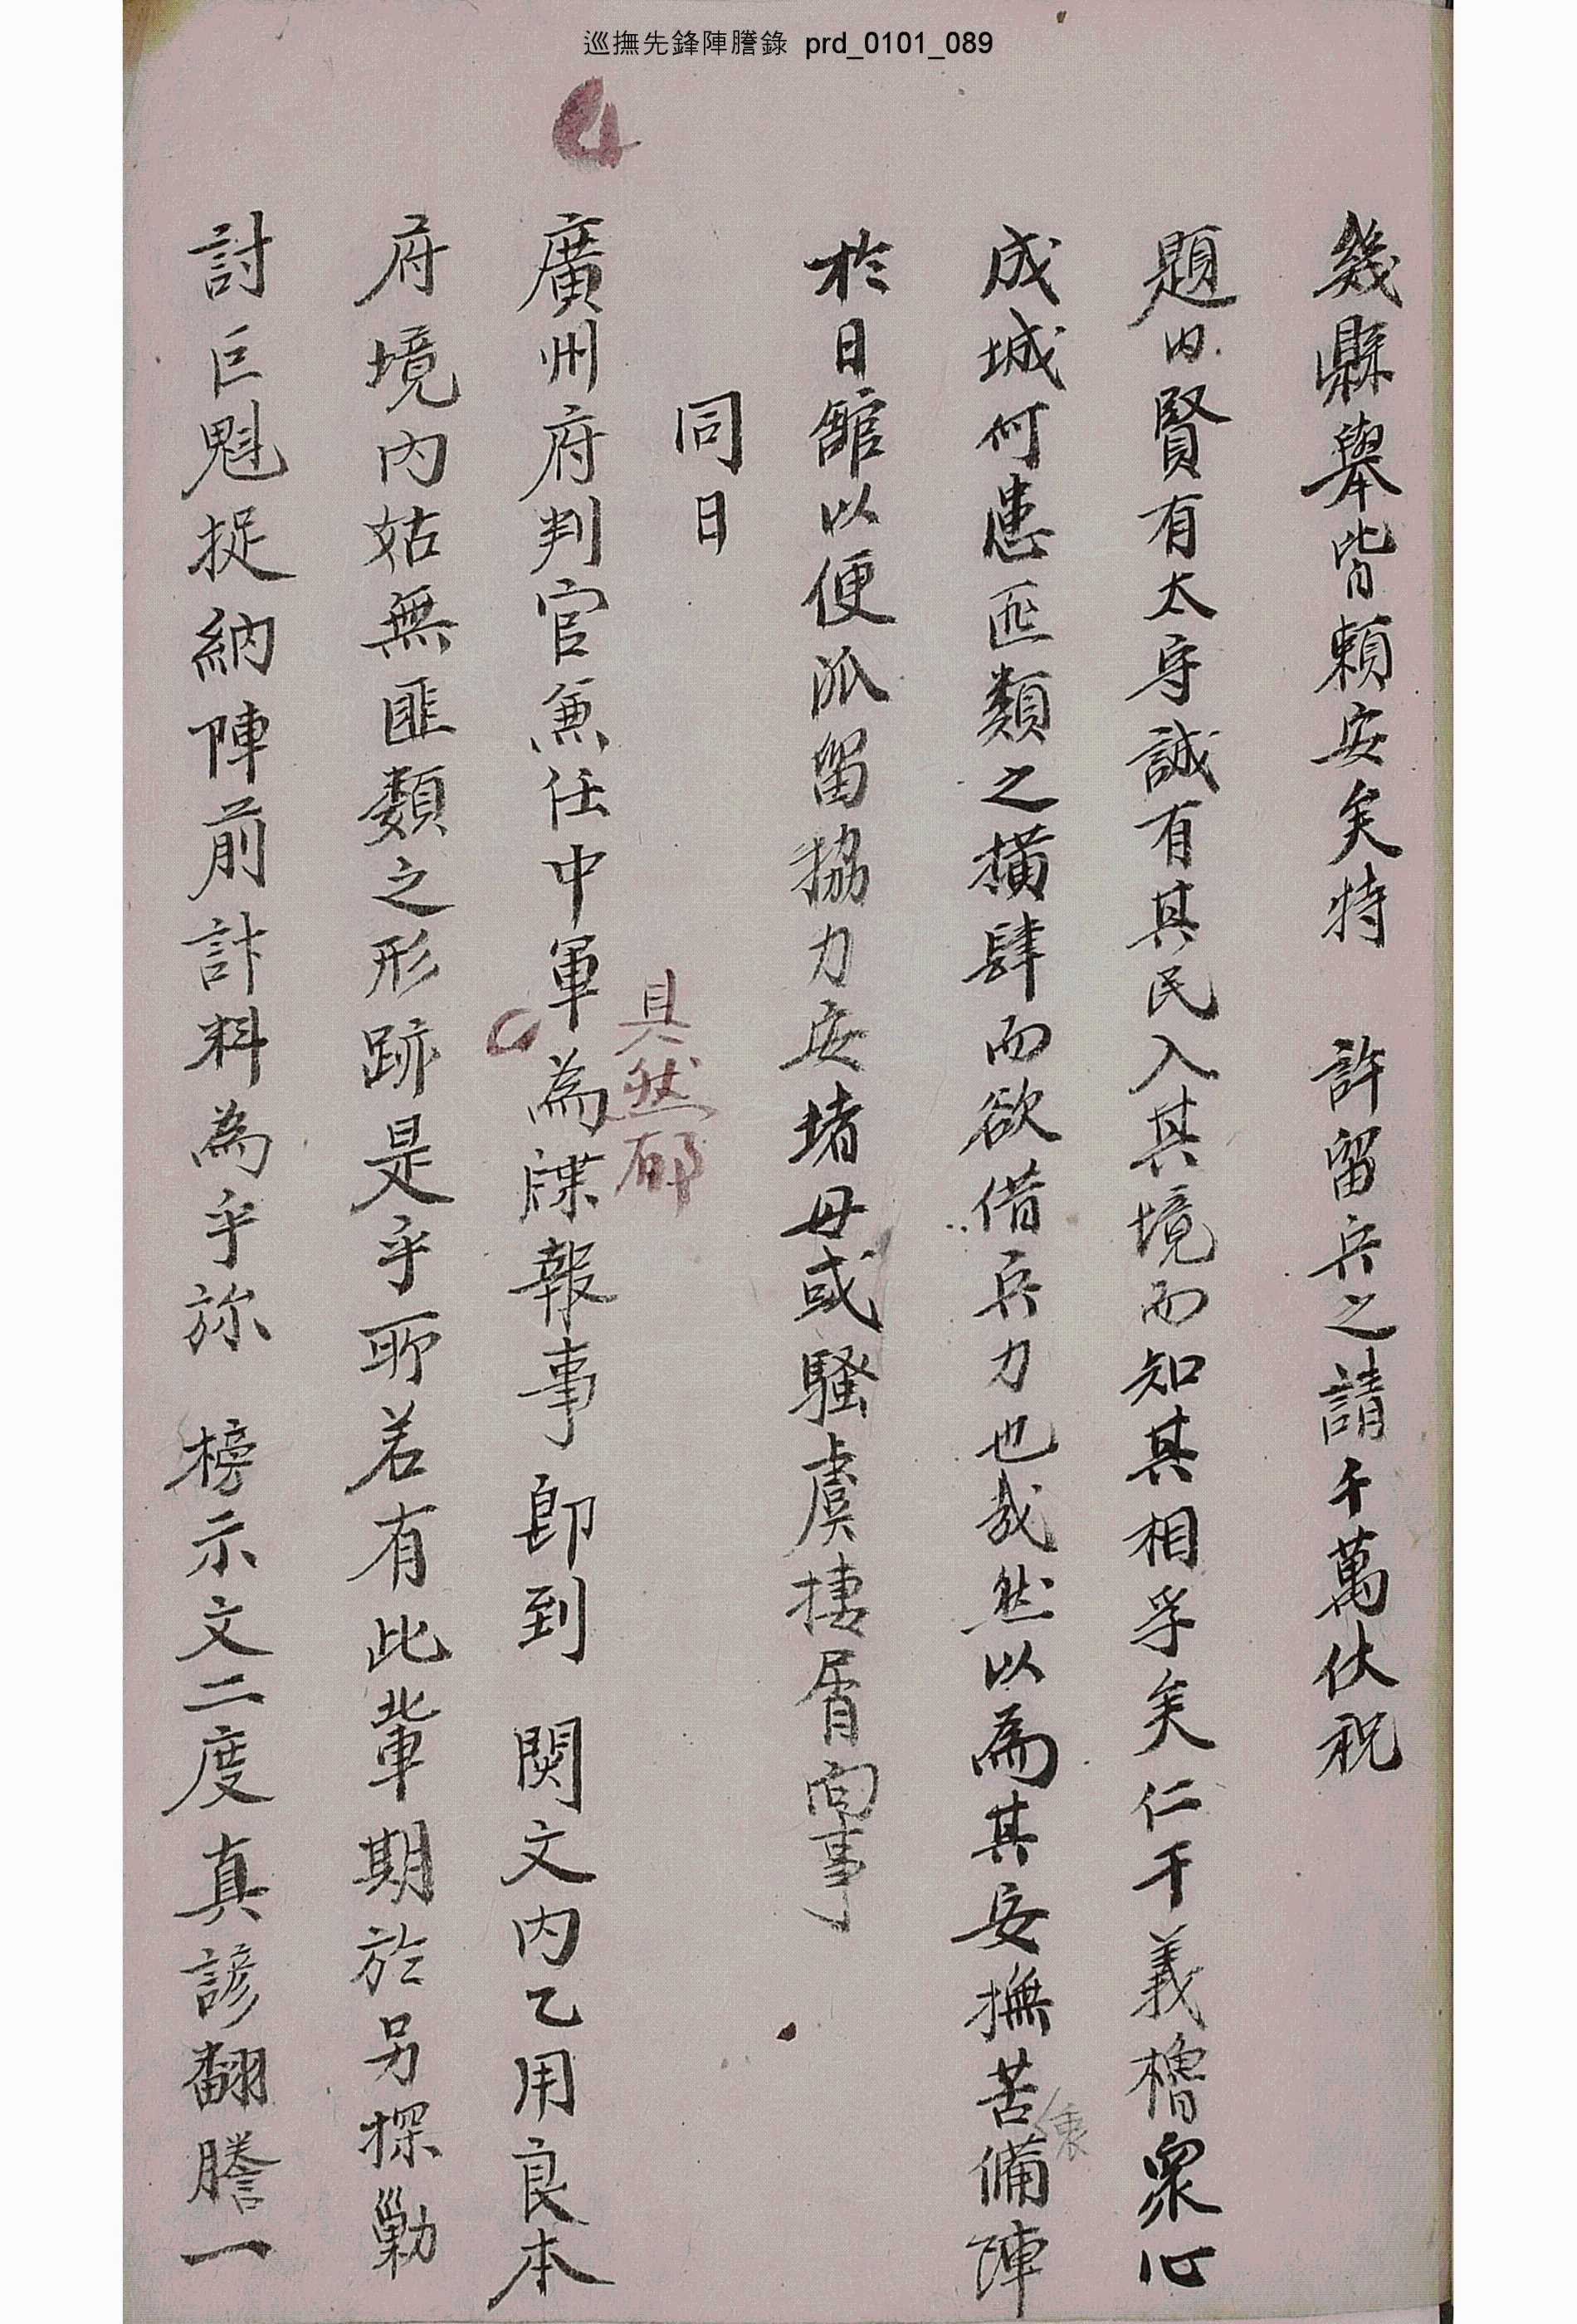 巡撫先鋒陣謄錄 prd_0101_089
幾縣擧皆賴安矣特 許留兵之請千萬伏祝
題內賢有太守誠有其民入其境而知其相孚矣仁干義櫓衆心
成城何患匪類之橫肆而欲借兵力也哉然以爲其安撫苦備陣
於日館以便派留協力安堵毋或騷虞捿屑向事
同日
具然郁
廣州府判官兼任中軍為牒報事卽到 関文內乙用良本
府境內姑無匪類之形跡是乎所若有此輩期於另探剿
討巨魁捉納陣前計料為乎旀 榜示文二度真諺翻謄一